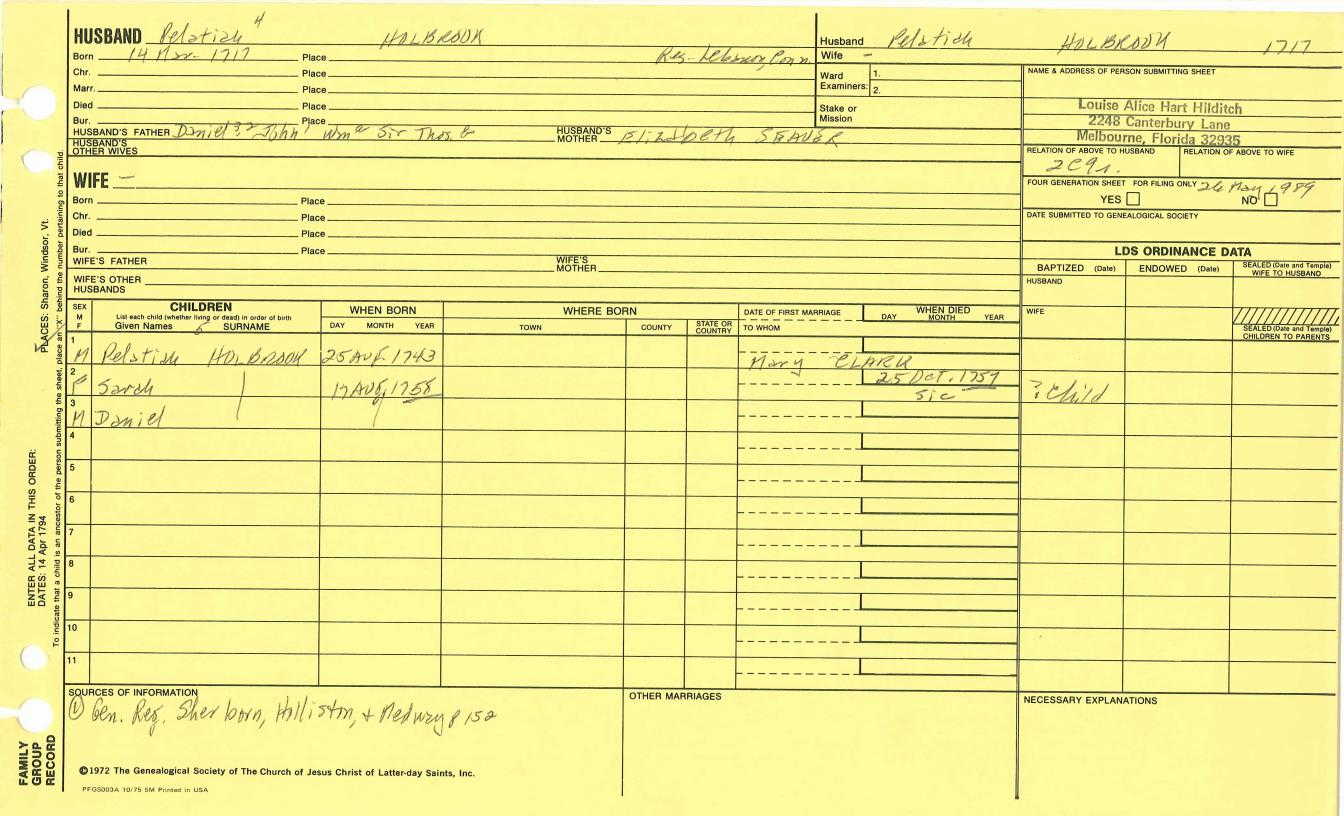 HUSBAND Pelatiah 4 HOLBROOK
Born 14 Mar 1717 Place Res- Lebanon, Conn.
Chr. Place
Marr. Place
Died Place
Bur. Place
HUSBAND'S FATHER Daniel 3 2 John 1 Wm a Sir Thos. HUSBAND'S MOTHER Elizabeth SEAVER
HUSBAND'S OTHER WIVES
Husband Pelatiah HOLBROOK 1717
Wife -
Ward Examiners: 1.
2.
Stake or Mission
NAME & ADDRESS OF PERSON SUBMITTING SHEET
Louise Alice Hart Hilditch
2248 Canterbury Lane
Melbourne, Florida 32935
RELATION OF ABOVE TO HUSBAND RELATION OF ABOVE TO WIFE
FOUR GENERATION SHEET FOR FILING ONLY 26 May 1989
YES NO
DATE SUBMITTED TO GENEALOGICAL SOCIETY
WIFE -
Born Place
Chr. Place
Died Place
Bur. Place
WIFE'S FATHER WIFE'S MOTHER
WIFE'S OTHER HUSBANDS
LDS ORDINANCE DATA
BAPTIZED (Date) ENDOWED (Date) SEALED (Date and Temple) WIFE TO HUSBAND
HUSBAND
WIFE
SEALED (Date and Temple) CHILDREN TO PARENTS
SEX M F
CHILDREN
List each child (whether living or dead) in order of birth
Given Names 5 SURNAME
WHEN BORN
DAY MONTH YEAR
WHERE BORN
TOWN COUNTY STATE OR COUNTRY
DATE OF FIRST MARRIAGE
TO WHOM
WHEN DIED
DAY MONTH YEAR
1 M Pelatiah HOLBROOK 25 AUG. 1743 Mary CLARK
2 F Sarah 17 AUG, 1758 25 OCT. 1757 sic ? Child
3 M Daniel
4
5
6
7
8
9
10
11
SOURCES OF INFORMATION
① Gen. Reg. Sherborn, Holliston, + Medway p 152
OTHER MARRIAGES
NECESSARY EXPLANATIONS
©1972 The Genealogical Society of The Church of Jesus Christ of Latter-day Saints, Inc.
PFGS003A 10/75 5M Printed in USA
FAMILY GROUP RECORD
ENTER ALL DATA IN THIS ORDER:
DATES: 14 Apr 1794
PLACES: Sharon, Windsor, Vt.
To indicate that a child is an ancestor of the person submitting the sheet, place an "X" behind the number pertaining to that child.